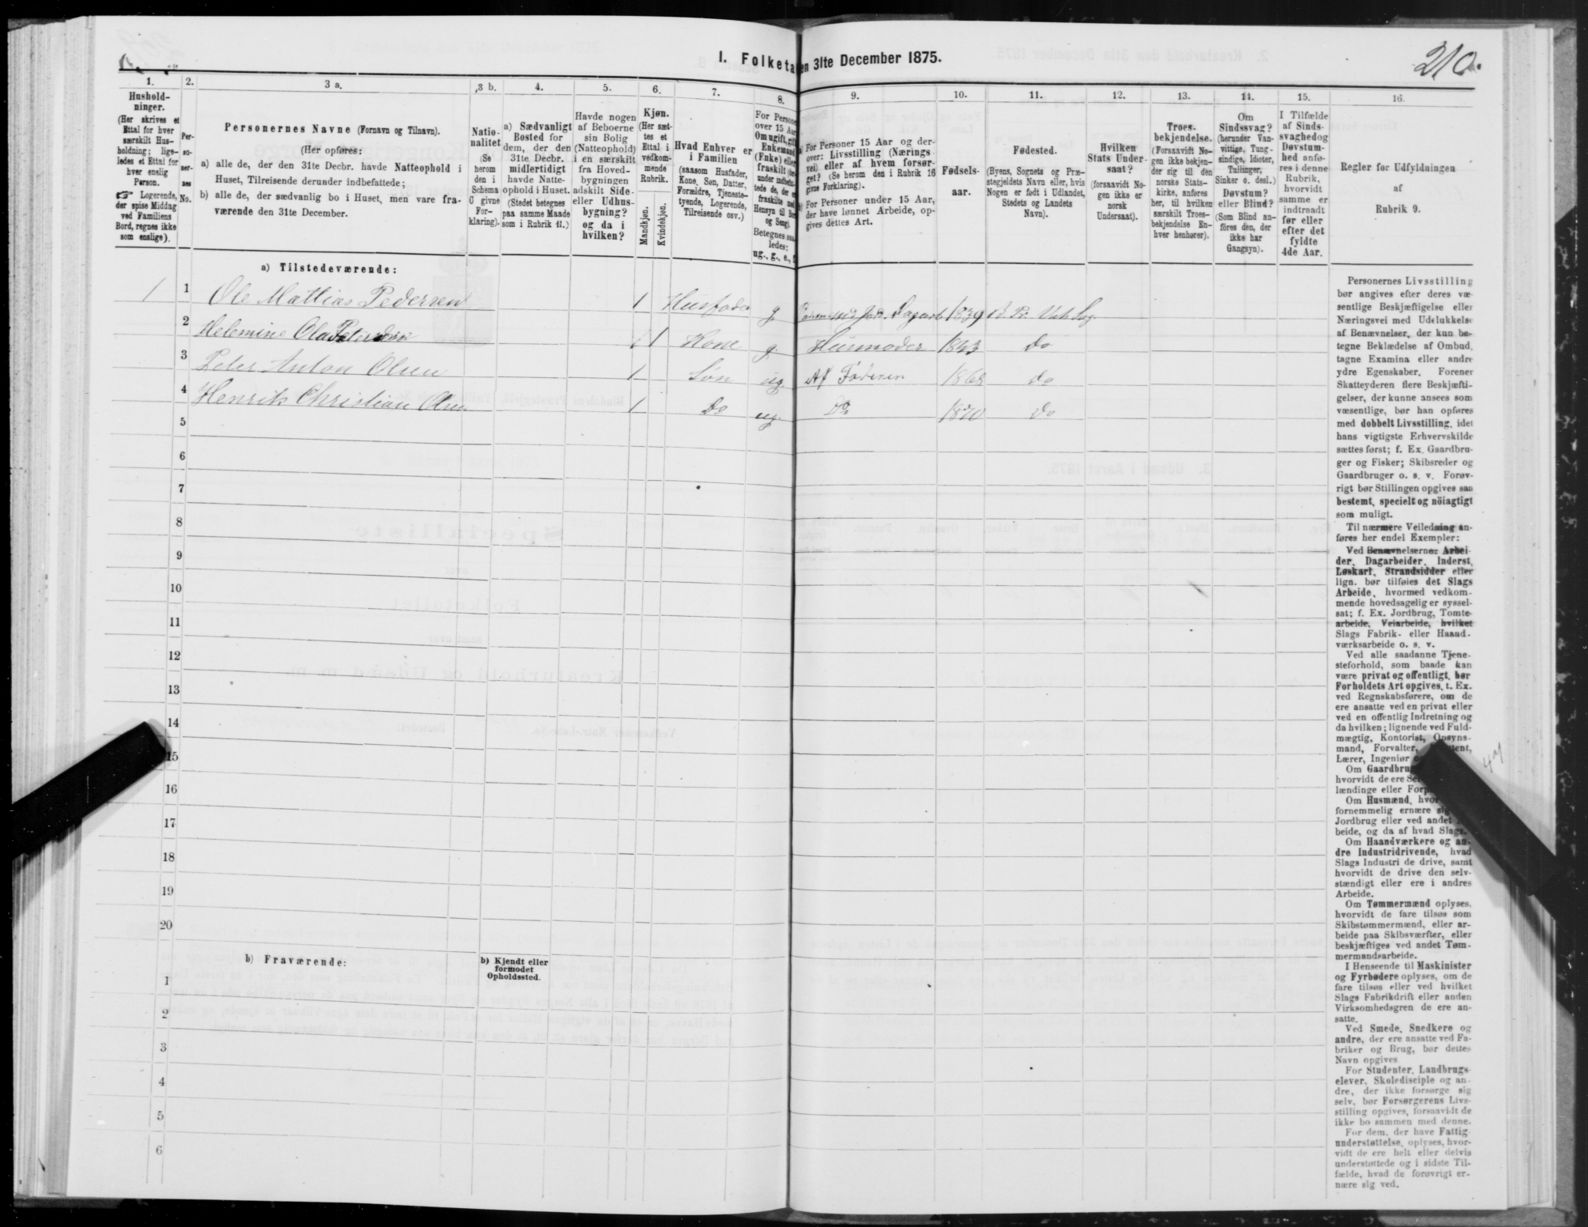 I. Folketa en 31te December 1875.
210.
1.
Hushold-
ninger.
(Her skrives et
Ettal for hver
særskilt Hus-
holdning; lige-
ledes et Ettal for
hver enslig
Person.
☞ Logerende,
der spise Middag
ved Familiens
Bord, regnes ikke
som enslige).
2.
Per-
so-
ner-
nes
No.
3 a.
Personernes Navne (Fornavn og Tilnavn).
(Her opføres:
a) alle de, der den 31te Decbr. havde Natteophold i
Huset, Tilreisende derunder indbefattede;
b) alle de, der sædvanlig bo i Huset, men vare fra-
værende den 31te December.
3 b.
Natio-
nalitet
(Se
herom
den i
Schema
0 givne
For-
klaring).
4.
a) Sædvanligt
Bosted for
dem, der den
31te Decbr.
midlertidigt
havde Natte-
ophold i Huset.
(Stedet betegnes
paa samme Maade
som i Rubrik 11.)
5.
Havde nogen
af Beboerne
sin Bolig
(Natteophold)
i en særskilt
fra Hoved-
bygningen
adskilt Side-
eller Udhus-
bygning?
og da i
hvilken?
6.
Kjøn.
(Her sæt-
tes et
Ettal i
vedkom-
mende
Rubrik.
Mandkjøn.
Kvindekjøn.
7.
Hvad Enhver er
i Familien
(saasom Husfader,
Kone, Søn, Datter,
Forældre, Tjeneste-
tyende, Logerende,
Tilreisende osv.)
8.
For Person
over 15 Aar
Om ugift, gift
Enkemand
(Enke) eller
fraskilt
Betegnes saa-
ledes:
ug., g., e.,
9.
For Personer 15 Aar og der-
over: Livsstilling (Nærings-
vei) eller af hvem forsør-
get? (Se herom den i Rubrik 16
givne Forklaring).
For Personer under 15 Aar,
der have lønnet Arbeide, op-
gives dettes Art.
10.
Fødsels-
aar.
11.
Fødested.
(Byens, Sognets og Præ-
stegjeldets Navn eller, hvis
Nogen er født i Udlandet,
Stedets og Landets
Navn).
12.
Hvilken
Stats Under-
saat?
(forsaavidt No-
gen ikke er
norsk
Undersaat).
13.
Troes-
bekjendelse.
(Forsaavidt No-
gen ikke bekjen-
der sig til den
norske Stats-
kirke, anføres
her, til hvilken
særskilt Troes-
bekjendelse En-
hver henhører).
14.
Om
Sindssvag?
(herunder Van-
vittige, Tung-
sindige, Idioter,
Tullinger,
Sinker o. desl.)
Døvstum?
eller Blind?
(Som Blind an-
føres den, der
ikke har
Gangsyn).
15.
I Tilfælde
af Sinds-
svaghed og
Døvstum-
hed anfø-
res i denne
Rubrik,
hvorvidt
samme er
indtraadt
før eller
efter det
fyldte
4de Aar.
16.
Regler for Udfyldningen
af
Rubrik 9.
a) Tilstedeværende:
1 1 Ole Mathias Pedersen 1 Husfader g Dagarb 1839
2 Helemine Ola 1 Kone g Husmoder 1843 do
3 Peter Anton Olsen 1 Søn ug Af Faderen 1868 do
4 Henrik Christian Olsen 1 Do ug Do 1870 do
5
6
7
8
9
10
11
12
13
14
15
16
17
18
19
20
b) Fraværende:
b) Kjendt eller
formodet
Opholdssted.
1
2
3
4
5
6
Personernes Livsstilling
bør angives efter deres væ-
sentlige Beskjæftigelse eller
Næringsvei med Udelukkelse
af Benævnelser, der kun be-
tegne Beklædelse af Ombud,
tagne Examina eller andre
ydre Egenskaber. Forener
Skatteyderen flere Beskjæfti-
gelser, der kunne ansees som
væsentlige, bør han opføres
med dobbelt Livsstilling, idet
hans vigtigste Erhvervskilde
sættes først; f. Ex. Gaardbru-
ger og Fisker; Skibsreder og
Gaardbruger o. s. v. Forøv-
rigt bør Stillingen opgives saa
bestemt, specielt og nöiagtigt
som muligt.
Til nærmere Veiledning an-
føres her endel Exempler:
Ved Benævnelserne: Arbei-
der, Dagarbeider, Inderst,
Løskarl, Strandsidder eller
lign. bør tilføies det Slags
Arbeide, hvormed vedkom-
mende hovedsagelig er syssel-
sat; f. Ex. Jordbrug, Tomte-
arbeide, Veiarbeide, hvilket
Slags Fabrik- eller Haand-
værksarbeide o. s. v.
Ved alle saadanne Tjene-
steforhold, som baade kan
være privat og offentligt, bør
Forholdets Art opgives, t. Ex.
ved Regnskabsførere, om de
ere ansatte ved en privat eller
ved en offentlig Indretning og
da hvilken; lignende ved Fuld-
mægtig, Kontorist, Opsyns-
mand, Forvalter,
Lærer, Ingeniør
Om Gaardbrug
hvorvidt de ere
lændinge eller
Om Husmænd,
fornemmelig ernære
Jordbrug eller ved andet
beide, og da af hvad Slags.
Om Haandværkere og an-
dre Industridrivende, hvad
Slags Industri de drive, samt
hvorvidt de drive den selv-
stændigt eller ere i andres
Arbeide.
Om Tømmermænd oplyses,
hvorvidt de fare tilsøs som
Skibstømmermænd, eller ar-
beide paa Skibsværfter, eller
beskjæftiges ved andet Tøm-
mermandsarbeide.
I Henseende til Maskinister
og Fyrbødere oplyses, om de
fare tilsøs eller ved hvilket
Slags Fabrikdrift eller anden
Virksomhedsgren de ere an-
satte.
Ved Smede, Snedkere og
andre, der ere ansatte ved Fa-
briker og Brug, bør dettes
Navn opgives
For Studenter, Landbrugs-
elever, Skoledisciple og an-
dre, der ikke forsørge sig
selv, bør Forsørgerens Livs-
stilling opgives, forsaavidt de
ikke bo sammen med denne.
For dem, der have Fattig-
understøttelse, oplyses, hvor-
vidt de ere helt eller delvis
understøttede og i sidste Til-
fælde, hvad de forøvrigt er-
nære sig ved.